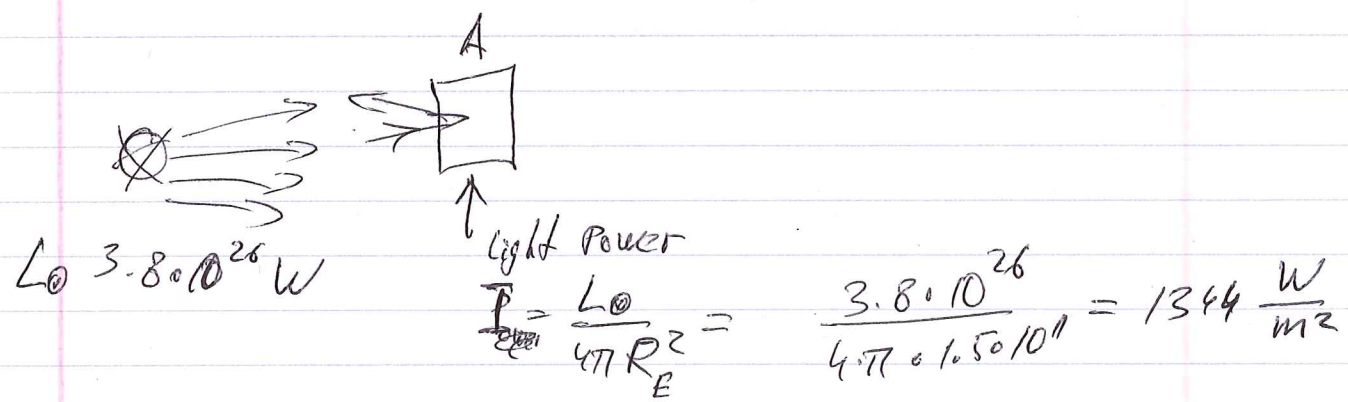 A
L⊙ 3.8·10^26 W
Light Power
I = L⊙ / 4πR_E^2 = 3.8·10^26 / 4·π·1.50·10^11 = 1344 W/m^2